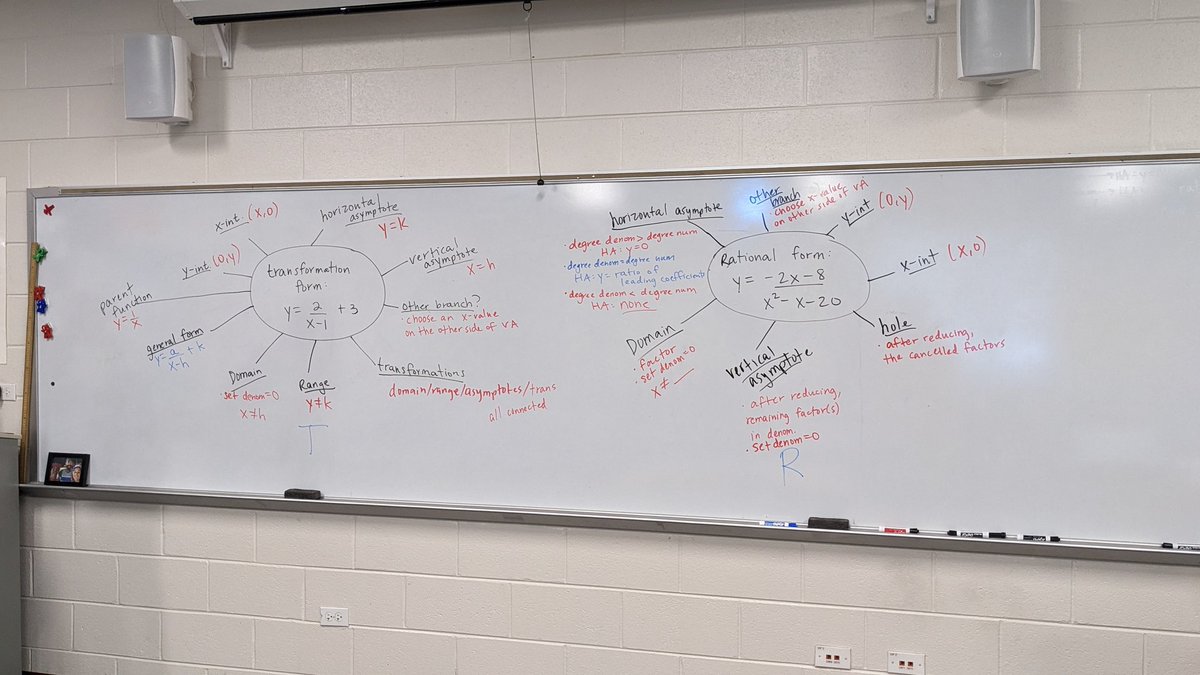 x-int (x,0)
horizontal
asymptote
y=k
y-int (0,y)
vertical
asymptote
x=h
parent
function
y=1/x
transformation
form:
y= 2/(x-1) + 3
general form
y= a/(x-h) + k
Other branch?
· choose an x-value
on the other side of VA
Domain
· set denom=0
x≠h
Range
y≠k
transformations
domain/range/asymptotes/trans
all connected
T
horizontal asymptote
· degree denom > degree num
HA: y=0
· degree denom = degree num
HA: y= ratio of
leading coefficients
· degree denom < degree num
HA: none
other
branch
· choose x-value
on other side of VA
y-int (0,y)
Rational form:
y= (-2x-8)/(x²-x-20)
x-int (x,0)
Domain
· factor
· set denom=0
x≠
vertical
asymptote
· after reducing,
remaining factor(s)
in denom.
· set denom=0
R
hole
· after reducing,
the cancelled factors